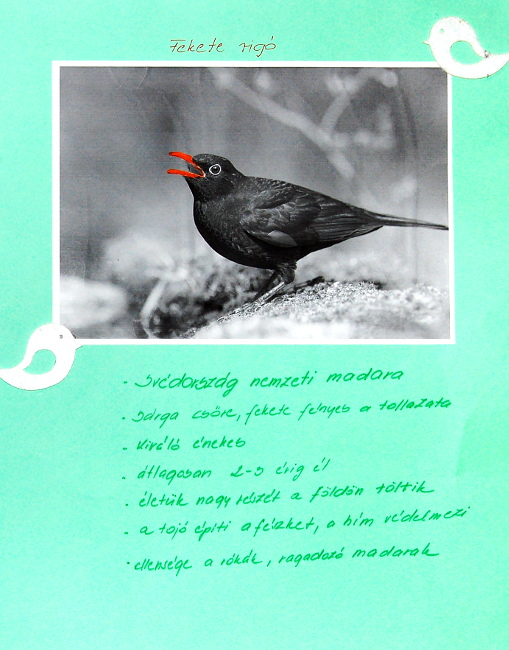 Fekete rigó
· Svédország nemzeti madara
· Sárga csőre, fekete fényes a tollazata
· Kiváló énekes
· átlagosan 2-3 évig él
· életük nagy részét a földön töltik
· a tojó építi a fészket, a hím védelmezi
· ellensége a rókák, ragadozó madarak